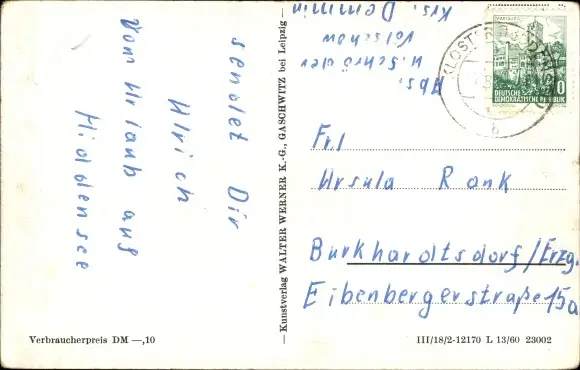 sendet Dir
Ulrich
Vom Urlaub auf
Hiddensee
Verbraucherpreis DM —,10
— Kunstverlag WALTER WERNER K.-G., GASCHWITZ bei Leipzig —
Abs.
U. Schröder
Volschow
Krs. Demmin
WARTBURG
10
DEUTSCHE
DEMOKRATISCHE REPUBLIK
KLOSTER
b
Frl
Ursula Rank
Burkhardtsdorf/Erzg.
Eibenbergerstraße 15a
III/18/2-12170 L 13/60 23002